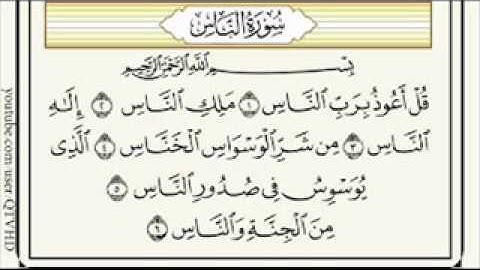 سُورَةُ النَّاسِ
بِسْمِ اللَّهِ الرَّحْمَٰنِ الرَّحِيمِ
قُلْ أَعُوذُ بِرَبِّ النَّاسِ ١ مَلِكِ النَّاسِ ٢ إِلَٰهِ
النَّاسِ ٣ مِن شَرِّ الْوَسْوَاسِ الْخَنَّاسِ ٤ الَّذِي
يُوَسْوِسُ فِي صُدُورِ النَّاسِ ٥
مِنَ الْجِنَّةِ وَالنَّاسِ ٦
youtube.com user Q1VHD